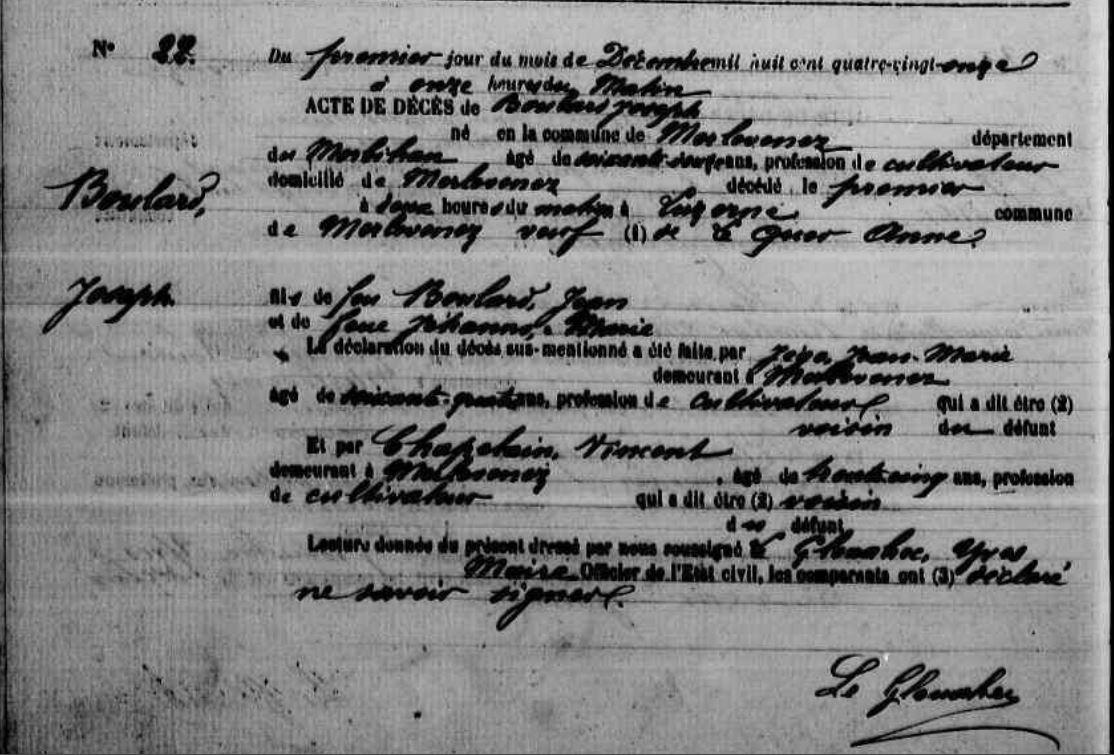 N° 22.
Du premier jour du mois de Décembre mil huit cent quatre-vingt-onze
à onze heures du Matin
ACTE DE DÉCÈS de Boulard Joseph
né en la commune de Merlevenez département
du Morbihan âgé de soixante- ans, profession de cultivateur
Boulard,
domicilié de Merlevenez décédé le premier
à heures du matin à commune
de Merlevenez veuf (1) de Le Quer Anne.
Joseph.
fils de feu Boulard, Jean
et de feue Jéhanno, Marie
La déclaration du décès sus-mentionné a été faite par Jean-Marie
demeurant à Merlevenez
âgé de soixante- ans, profession de cultivateur qui a dit être (2)
voisin du défunt
Et par Chapelain, Vincent
demeurant à Merlevenez, âgé de trente-cinq ans, profession
de cultivateur qui a dit être (2) voisin
du défunt
Lecture donnée du présent dressé par nous soussigné Le Glouahec, Yves
Maire Officier de l'Etat civil, les comparants ont (3) déclaré
ne savoir signer.
Le Glouahec